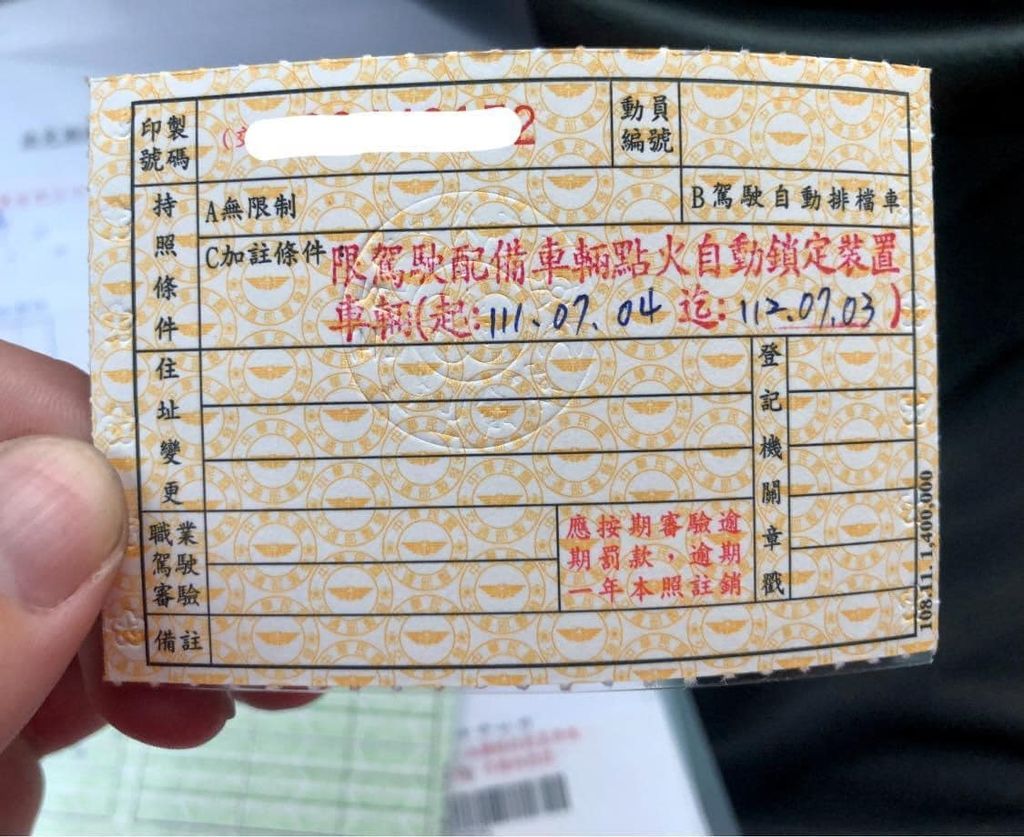 印製號碼
2
動員編號
持照條件
A無限制
B駕駛自動排檔車
C加註條件
限駕駛配備車輛點火自動鎖定裝置
車輛(起:111.07.04 迄:112.07.03)
住址變更
登記機關章戳
職業駕駛審驗
應按期審驗逾
期罰款，逾期
一年本照註銷
備註
108.11.1,400,000